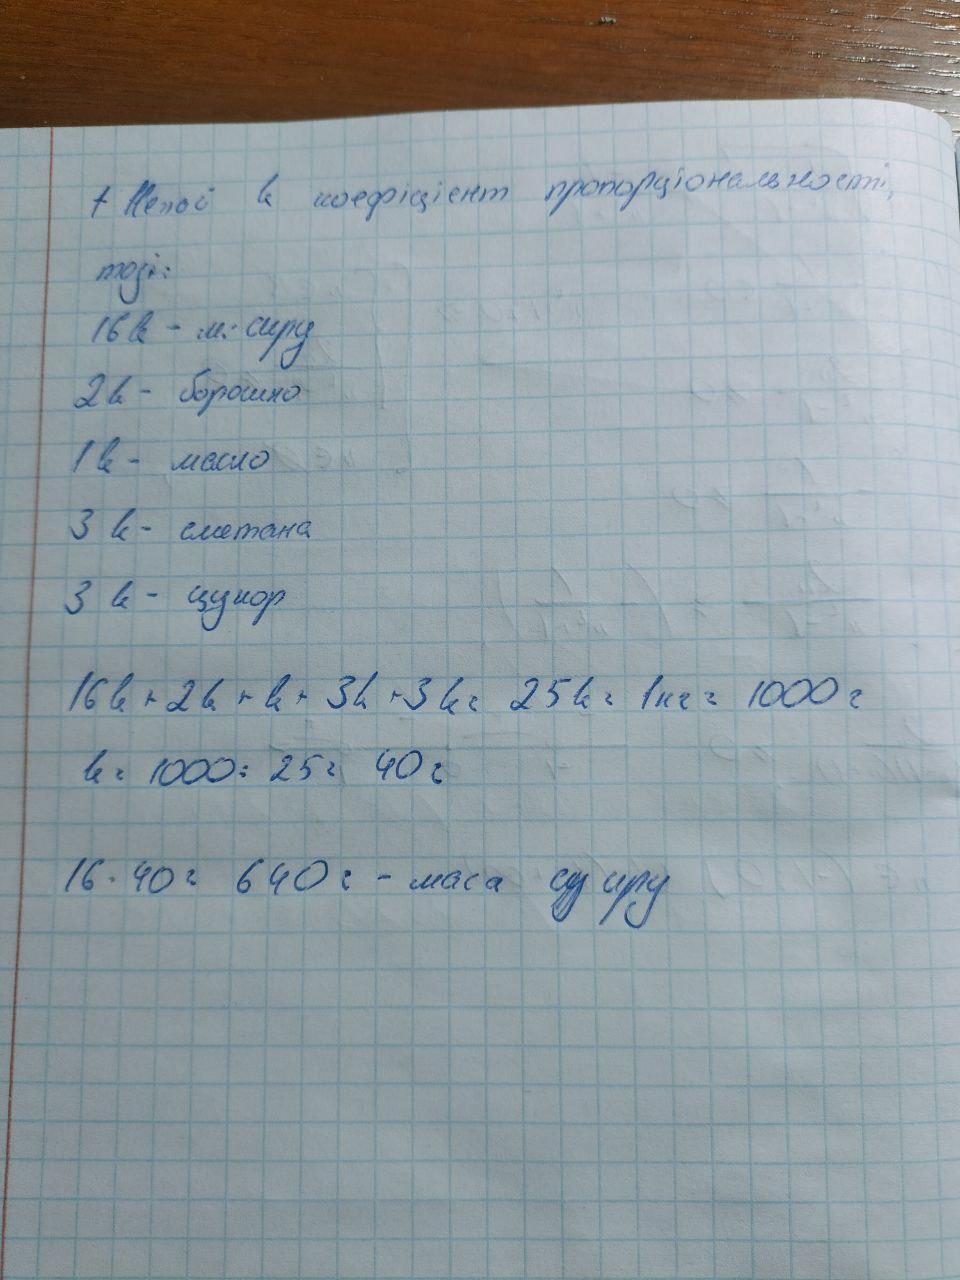 7 Нехай k коефіцієнт пропорціональності,
тоді:
16k - м. сиру
2k - борошно
1k - масло
3k - сметана
3k - цукор
16k + 2k + k + 3k + 3k = 25k = 1кг = 1000г
k = 1000 : 25 = 40г
16 · 40 = 640г - маса сиру